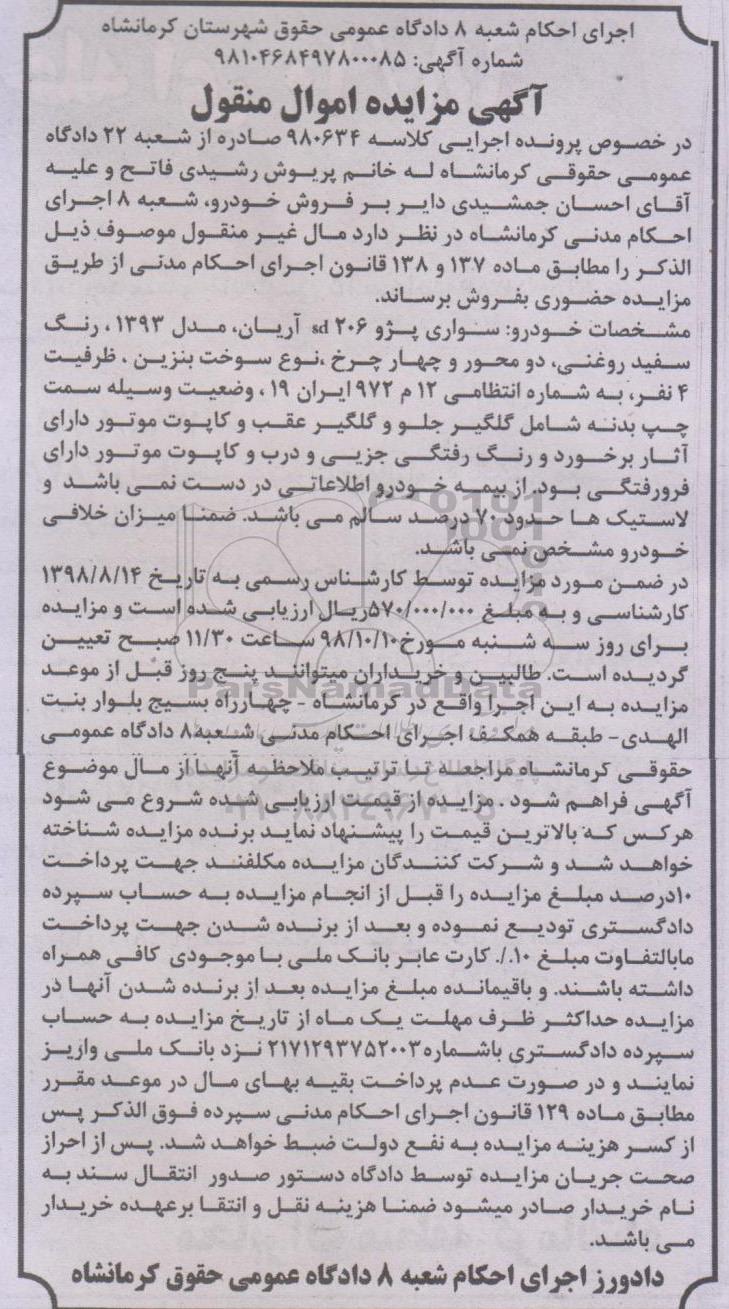 اجرای احکام شعبه ۸ دادگاه عمومی حقوق شهرستان کرمانشاه
شماره آگهی: ۹۸۱۰۴۶۸۴۹۷۸۰۰۰۸۵
آگهی مزایده اموال منقول
در خصوص پرونده اجرایی کلاسه ۹۸۰۶۳۴ صادره از شعبه ۲۲ دادگاه
عمومی حقوقی کرمانشاه له خانم پریوش رشیدی فاتح و علیه
آقای احسان جمشیدی دایر بر فروش خودرو، شعبه ۸ اجرای
احکام مدنی کرمانشاه در نظر دارد مال غیر منقول موصوف ذیل
الذکر را مطابق ماده ۱۳۷ و ۱۳۸ قانون اجرای احکام مدنی از طریق
مزایده حضوری بفروش برساند.
مشخصات خودرو: سواری پژو ۲۰۶ sd آریان، مدل ۱۳۹۳ ، رنگ
سفید روغنی، دو محور و چهار چرخ ،نوع سوخت بنزین . ظرفیت
۴ نفر، به شماره انتظامی ۱۲ م ۹۷۲ ایران ۱۹ ، وضعیت وسیله سمت
چپ بدنه شامل گلگیر جلو و گلگیر عقب و کاپوت موتور دارای
آثار برخورد و رنگ رفتگی جزیی و درب و کاپوت موتور دارای
فرورفتگی بود. از بیمه خودرو اطلاعاتی در دست نمی باشد و
لاستیک ها حدود ۷۰ درصد سالم می باشد. ضمنا میزان خلافی
خودرو مشخص نمی باشد.
در ضمن مورد مزایده توسط کارشناس رسمی به تاریخ ۱۳۹۸/۸/۱۴
کارشناسی و به مبلغ ۵۷۰/۰۰۰/۰۰۰ریال ارزیابی شده است و مزایده
برای روز سه شنبه مورخ۹۸/۱۰/۱۰ ساعت ۱۱/۳۰ صبح تعیین
گردیده است. طالبین و خریداران میتوانند پنج روز قبل از موعد
مزایده به این اجرا واقع در کرمانشاه - چهارراه بسیج بلوار بنت
الهدی- طبقه همکف اجرای احکام مدنی شعبه۸ دادگاه عمومی
حقوقی کرمانشاه مراجعه تا ترتیب ملاحظه آنها از مال موضوع
آگهی فراهم شود . مزایده از قیمت ارزیابی شده شروع می شود
هرکس که بالاترین قیمت را پیشنهاد نماید برنده مزایده شناخته
خواهد شد و شرکت کنندگان مزایده مکلفند جهت پرداخت
۱۰درصد مبلغ مزایده را قبل از انجام مزایده به حساب سپرده
دادگستری تودیع نموده و بعد از برنده شدن جهت پرداخت
مابالتفاوت مبلغ ۱۰./. کارت عابر بانک ملی با موجودی کافی همراه
داشته باشند. و باقیمانده مبلغ مزایده بعد از برنده شدن آنها در
مزایده حداکثر ظرف مهلت یک ماه از تاریخ مزایده به حساب
سپرده دادگستری باشماره۲۱۷۱۲۹۳۷۵۲۰۰۳ نزد بانک ملی واریز
نمایند و در صورت عدم پرداخت بقیه بهای مال در موعد مقرر
مطابق ماده ۱۲۹ قانون اجرای احکام مدنی سپرده فوق الذکر پس
از کسر هزینه مزایده به نفع دولت ضبط خواهد شد. پس از احراز
صحت جریان مزایده توسط دادگاه دستور صدور انتقال سند به
نام خریدار صادر میشود ضمنا هزینه نقل و انتقا برعهده خریدار
می باشد.
دادورز اجرای احکام شعبه ۸ دادگاه عمومی حقوق کرمانشاه
ParsNamadData